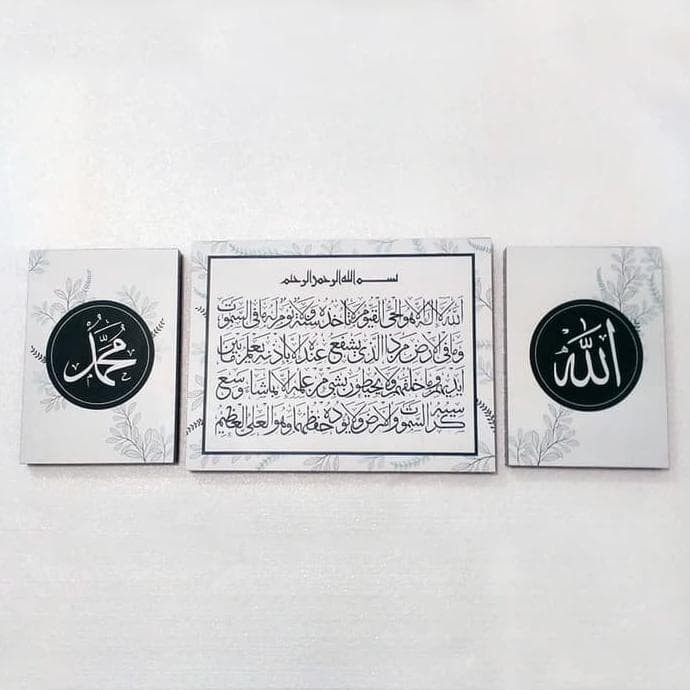 الله
بسم الله الرحمن الرحيم
الله لا اله الا هو الحي القيوم لا تاخذه سنة ولا نوم له ما في السموات
وما في الارض من ذا الذي يشفع عنده الا باذنه يعلم ما بين
ايديهم وما خلفهم ولا يحيطون بشيء من علمه الا بما شاء وسع
كرسيه السموات والارض ولا يؤده حفظهما وهو العلي العظيم
محمد